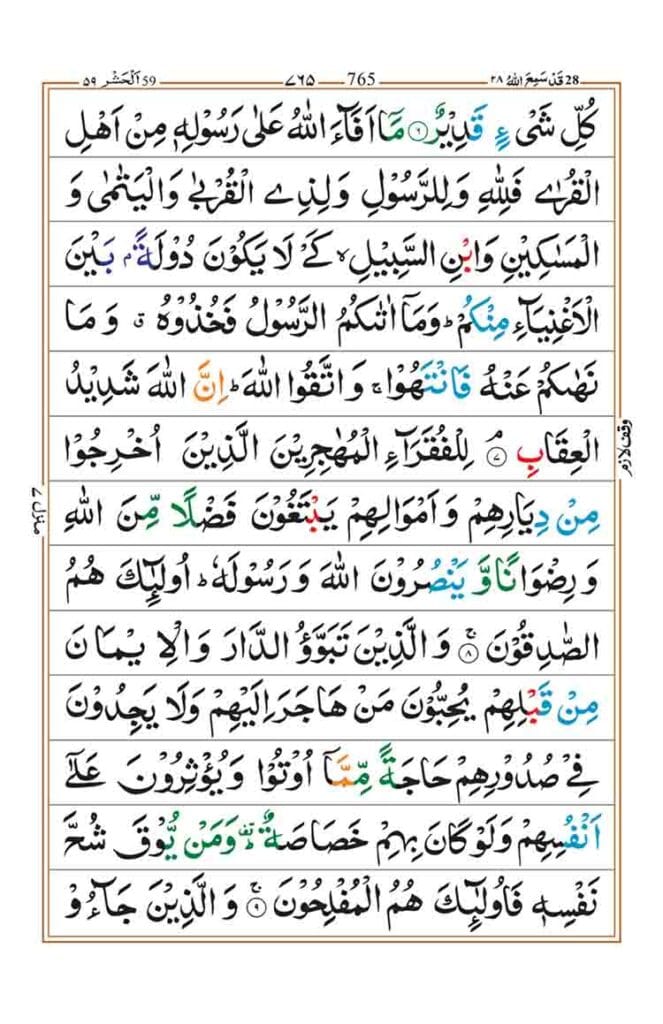 28 قَدْ سَمِعَ اللهُ ٢٨
765 ٧٦٥
59 اَلْحَشْر ٥٩
كُلِّ شَیْءٍ قَدِیْرٌ ۝٦ مَاۤ اَفَآءَ اللهُ عَلٰی رَسُوْلِهٖ مِنْ اَهْلِ
الْقُرٰی فَلِلّٰهِ وَلِلرَّسُوْلِ وَلِذِی الْقُرْبٰی وَالْیَتٰمٰی وَ
الْمَسٰكِیْنِ وَابْنِ السَّبِیْلِ ۙ كَیْ لَا یَكُوْنَ دُوْلَةًۢ بَیْنَ
الْاَغْنِیَآءِ مِنْكُمْ ؕ وَمَاۤ اٰتٰىكُمُ الرَّسُوْلُ فَخُذُوْهُ ۗ وَمَا
نَهٰىكُمْ عَنْهُ فَانْتَهُوْا ۚ وَاتَّقُوا اللهَ ؕ اِنَّ اللهَ شَدِیْدُ
الْعِقَابِ ۘ۝٧ لِلْفُقَرَآءِ الْمُهٰجِرِیْنَ الَّذِیْنَ اُخْرِجُوْا
وقف لازم
مِنْ دِیَارِهِمْ وَاَمْوَالِهِمْ یَبْتَغُوْنَ فَضْلًا مِّنَ اللهِ
منزل ٧
وَرِضْوَانًا وَّ یَنْصُرُوْنَ اللهَ وَرَسُوْلَهٗ ؕ اُولٰٓئِكَ هُمُ
الصّٰدِقُوْنَ ۚ۝٨ وَالَّذِیْنَ تَبَوَّؤُ الدَّارَ وَالْاِیْمَانَ
مِنْ قَبْلِهِمْ یُحِبُّوْنَ مَنْ هَاجَرَ اِلَیْهِمْ وَلَا یَجِدُوْنَ
فِیْ صُدُوْرِهِمْ حَاجَةً مِّمَّاۤ اُوْتُوْا وَیُؤْثِرُوْنَ عَلٰۤی
اَنْفُسِهِمْ وَلَوْ كَانَ بِهِمْ خَصَاصَةٌ ۗ وَمَنْ یُّوْقَ شُحَّ
نَفْسِهٖ فَاُولٰٓئِكَ هُمُ الْمُفْلِحُوْنَ ۚ۝٩ وَالَّذِیْنَ جَآءُوْ